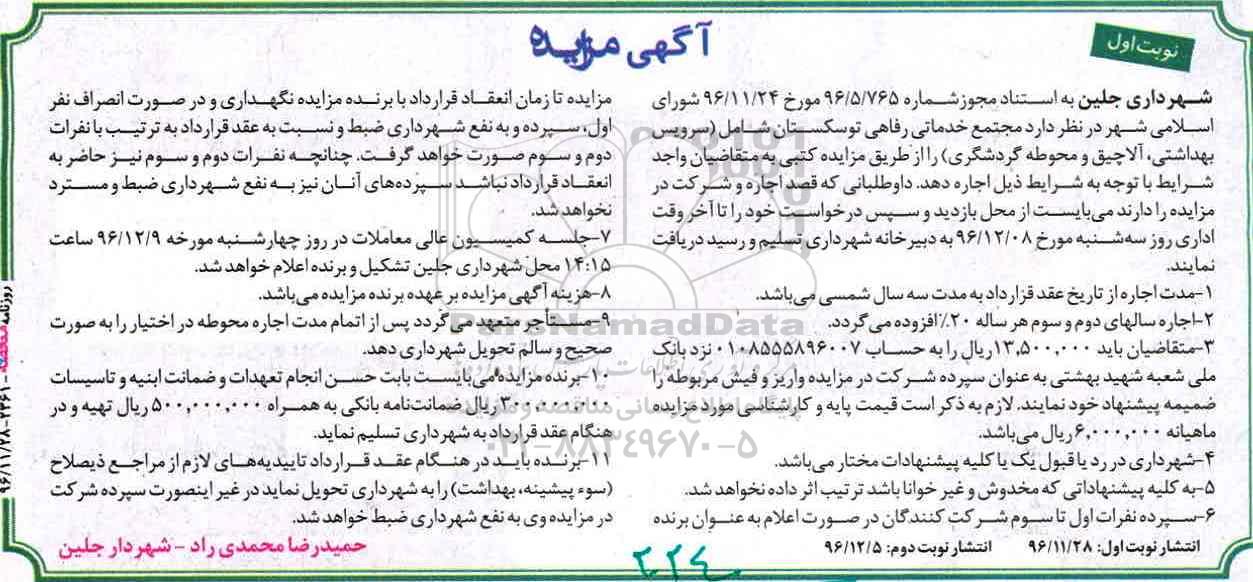 نوبت اول
آگهی مزایده
شهرداری جلین به استناد مجوز شماره ۹۶/۵/۷۶۵ مورخ ۹۶/۱۱/۲۴ شورای
اسلامی شهر در نظر دارد مجتمع خدماتی رفاهی توسکستان شامل (سرویس
بهداشتی، آلاچیق و محوطه گردشگری) را از طریق مزایده کتبی به متقاضیان واجد
شرایط با توجه به شرایط ذیل اجاره دهد. داوطلبانی که قصد اجاره و شرکت در
مزایده را دارند می‌بایست از محل بازدید و سپس درخواست خود را تا آخر وقت
اداری روز سه‌شنبه مورخ ۹۶/۱۲/۰۸ به دبیرخانه شهرداری تسلیم و رسید دریافت
نمایند.
۱-مدت اجاره از تاریخ عقد قرارداد به مدت سه سال شمسی می‌باشد.
۲-اجاره سالهای دوم و سوم هر ساله ۲۰٪ افزوده می گردد.
۳-متقاضیان باید ۱۳,۵۰۰,۰۰۰ ریال را به حساب ۰۱۰۸۵۵۵۸۹۶۰۰۷ نزد بانک
ملی شعبه شهید بهشتی به عنوان سپرده شرکت در مزایده واریز و فیش مربوطه را
ضمیمه پیشنهاد خود نمایند. لازم به ذکر است قیمت پایه و کارشناسی مورد مزایده
ماهیانه ۶,۰۰۰,۰۰۰ ریال می‌باشد.
۴-شهرداری در رد یا قبول یک یا کلیه پیشنهادات مختار می‌باشد.
۵-به کلیه پیشنهاداتی که مخدوش و غیر خوانا باشد ترتیب اثر داده نخواهد شد.
۶-سپرده نفرات اول تا سوم شرکت کنندگان در صورت اعلام به عنوان برنده
مزایده تا زمان انعقاد قرارداد با برنده مزایده نگهداری و در صورت انصراف نفر
اول، سپرده و به نفع شهرداری ضبط و نسبت به عقد قرارداد به ترتیب با نفرات
دوم و سوم صورت خواهد گرفت. چنانچه نفرات دوم و سوم نیز حاضر به
انعقاد قرارداد نباشد سپرده‌های آنان نیز به نفع شهرداری ضبط و مسترد
نخواهد شد.
۷-جلسه کمیسیون عالی معاملات در روز چهارشنبه مورخه ۹۶/۱۲/۹ ساعت
۱۴:۱۵ محل شهرداری جلین تشکیل و برنده اعلام خواهد شد.
۸-هزینه آگهی مزایده بر عهده برنده مزایده می‌باشد.
۹-مستأجر متعهد می گردد پس از اتمام مدت اجاره محوطه در اختیار را به صورت
صحیح و سالم تحویل شهرداری دهد.
۱۰-برنده مزایده می‌بایست بابت حسن انجام تعهدات و ضمانت ابنیه و تاسیسات
۳۰۰,۰۰۰,۰۰۰ ریال ضمانت‌نامه بانکی به همراه ۵۰۰,۰۰۰,۰۰۰ ریال تهیه و در
هنگام عقد قرارداد به شهرداری تسلیم نماید.
۱۱-برنده باید در هنگام عقد قرارداد تاییدیه‌های لازم از مراجع ذیصلاح
(سوء پیشینه، بهداشت) را به شهرداری تحویل نماید در غیر اینصورت سپرده شرکت
در مزایده وی به نفع شهرداری ضبط خواهد شد.
انتشار نوبت اول: ۹۶/۱۱/۲۸ انتشار نوبت دوم: ۹۶/۱۲/۵
حمیدرضا محمدی راد - شهردار جلین
ParsNamadData
پایگاه اطلاع رسانی مناقصه و مزایده
۰۲۱-۸۸۳۴۹۶۷۰-۵
۲۲۴